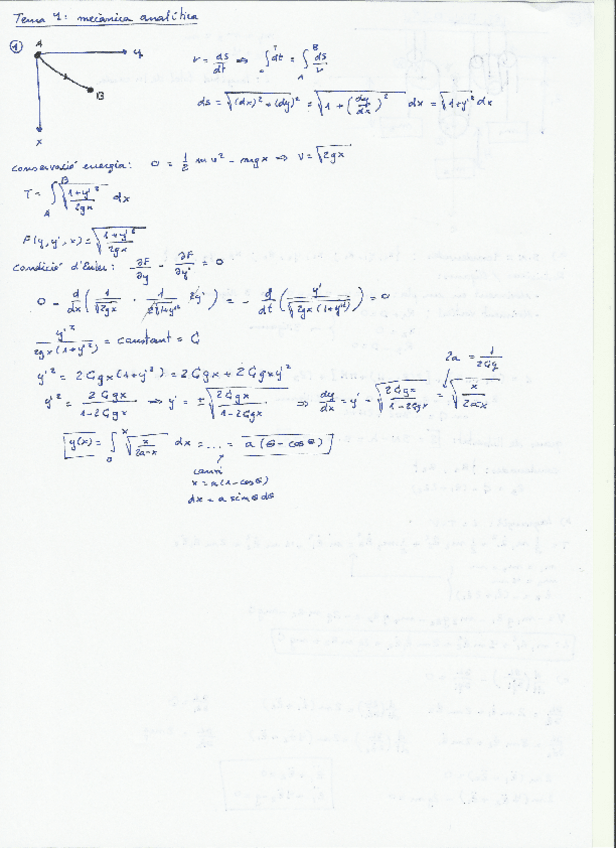 Tema 1: mecànica analítica
① A
y
B
x
v = ds/dt ⇒ ∫₀ᵀ dt = ∫_A^B ds/v
ds = √((dx)² + (dy)²) = √(1 + (dy/dx)²) dx = √(1+y'²) dx
conservació energia: 0 = 1/2 m v² - mgx ⇒ v = √(2gx)
T = ∫_A^B √((1+y'²)/(2gx)) dx
F(y, y', x) = √((1+y'²)/(2gx))
condició d'Euler: ∂F/∂y - ∂F/∂y' = 0
0 - d/dx (1/√(2gx) · 1/(2√(1+y'²)) 2y') = - d/dt (y'/√(2gx(1+y'²))) = 0
y'²/(2gx(1+y'²)) = constant = C₁
y'² = 2C₁gx(1+y'²) = 2C₁gx + 2C₁gxy'²
2a = 1/(2C₁g)
y'² = 2C₁gx/(1-2C₁gx) ⇒ y' = ±√(2C₁gx/(1-2C₁gx)) ⇒ dy/dx = y' = √(2C₁gx/(1-2C₁gx)) = √(x/(2a-x))
y(x) = ∫₀ˣ √(x/(2a-x)) dx = ... = a(θ - cosθ)
canvi
x = a(1-cosθ)
dx = a sinθ dθ